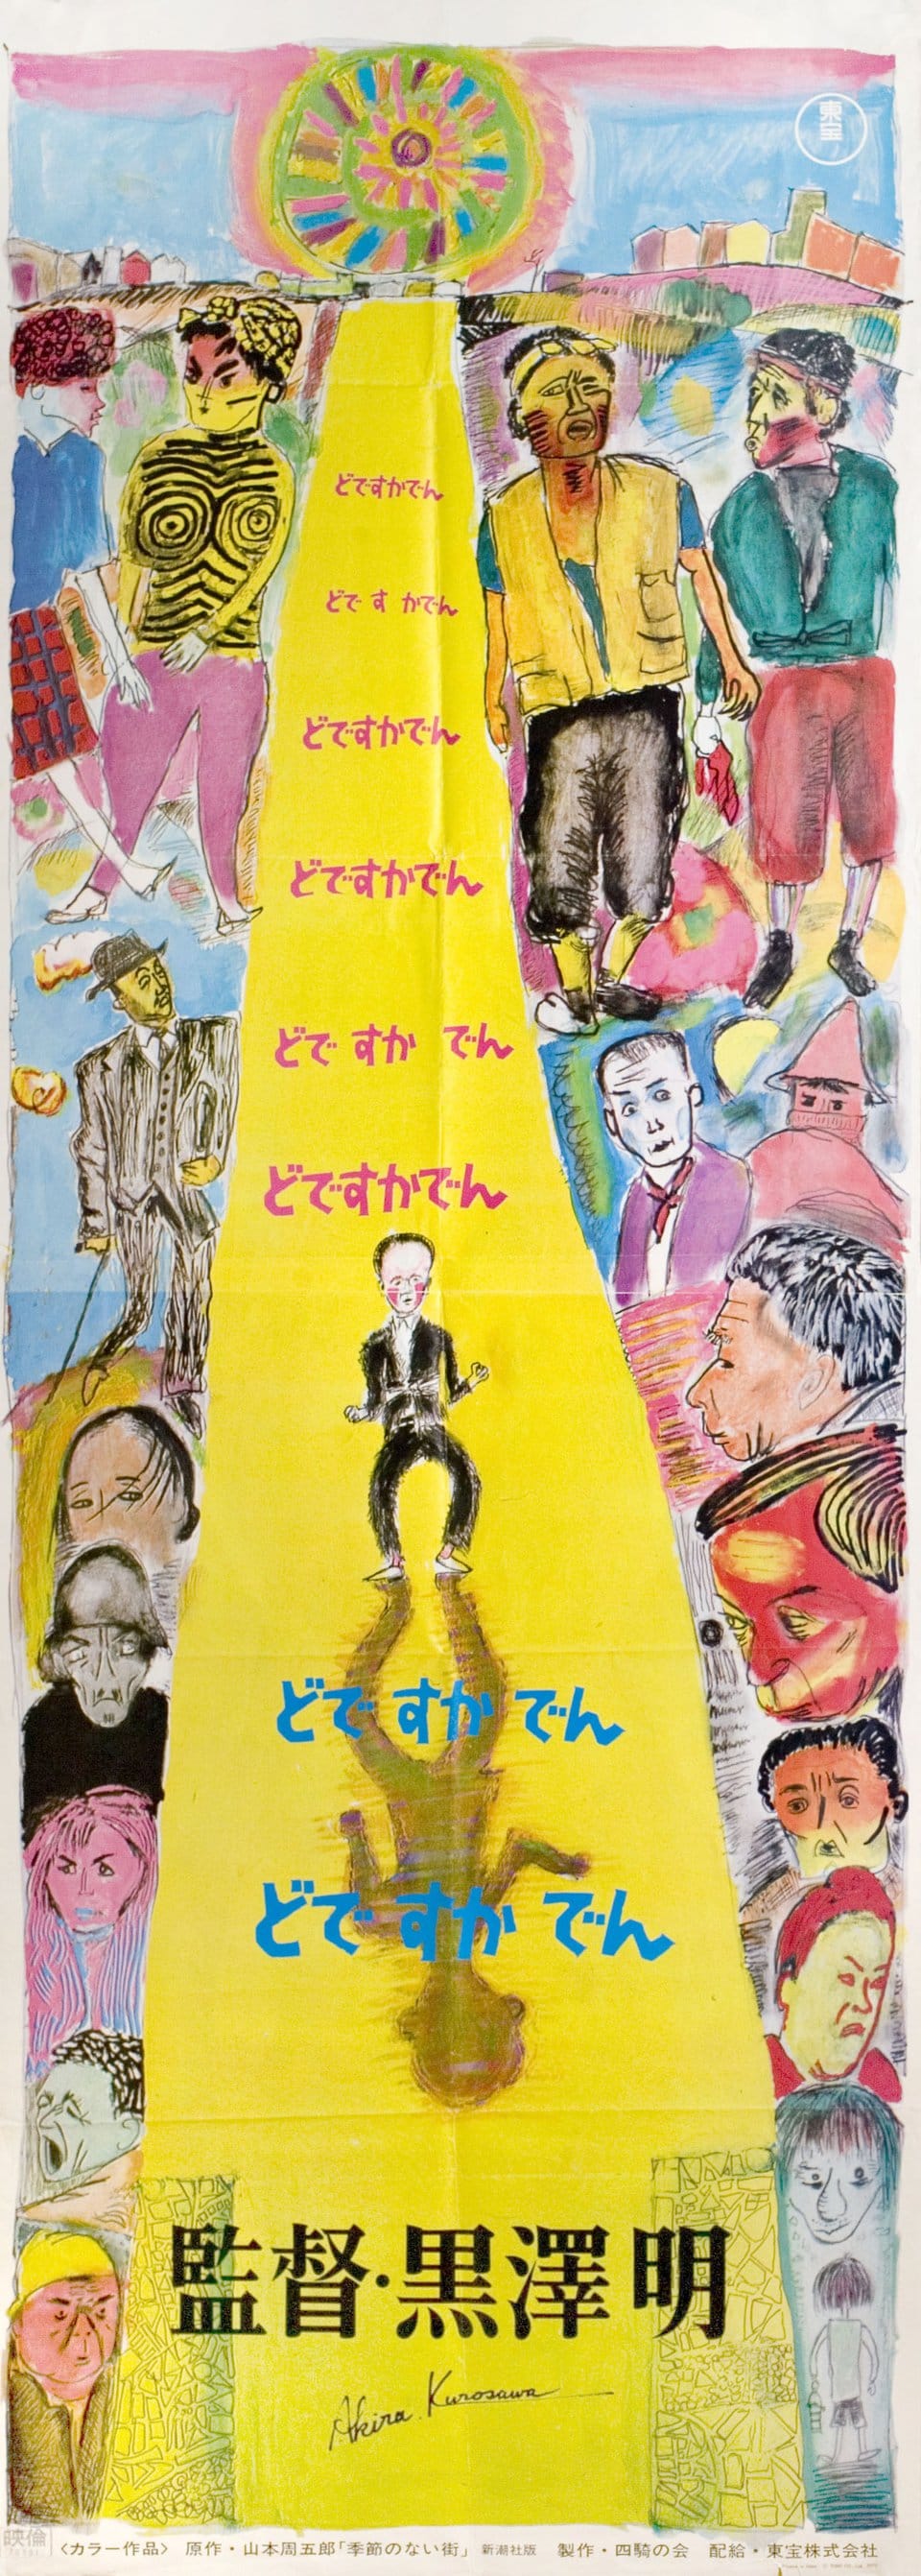 東宝
どですかでん
どですかでん
どですかでん
どですかでん
どですかでん
どですかでん
どですかでん
どですかでん
監督・黒澤明
Akira Kurosawa
映倫
〈カラー作品〉 原作・山本周五郎「季節のない街」 新潮社版 製作・四騎の会 配給・東宝株式会社